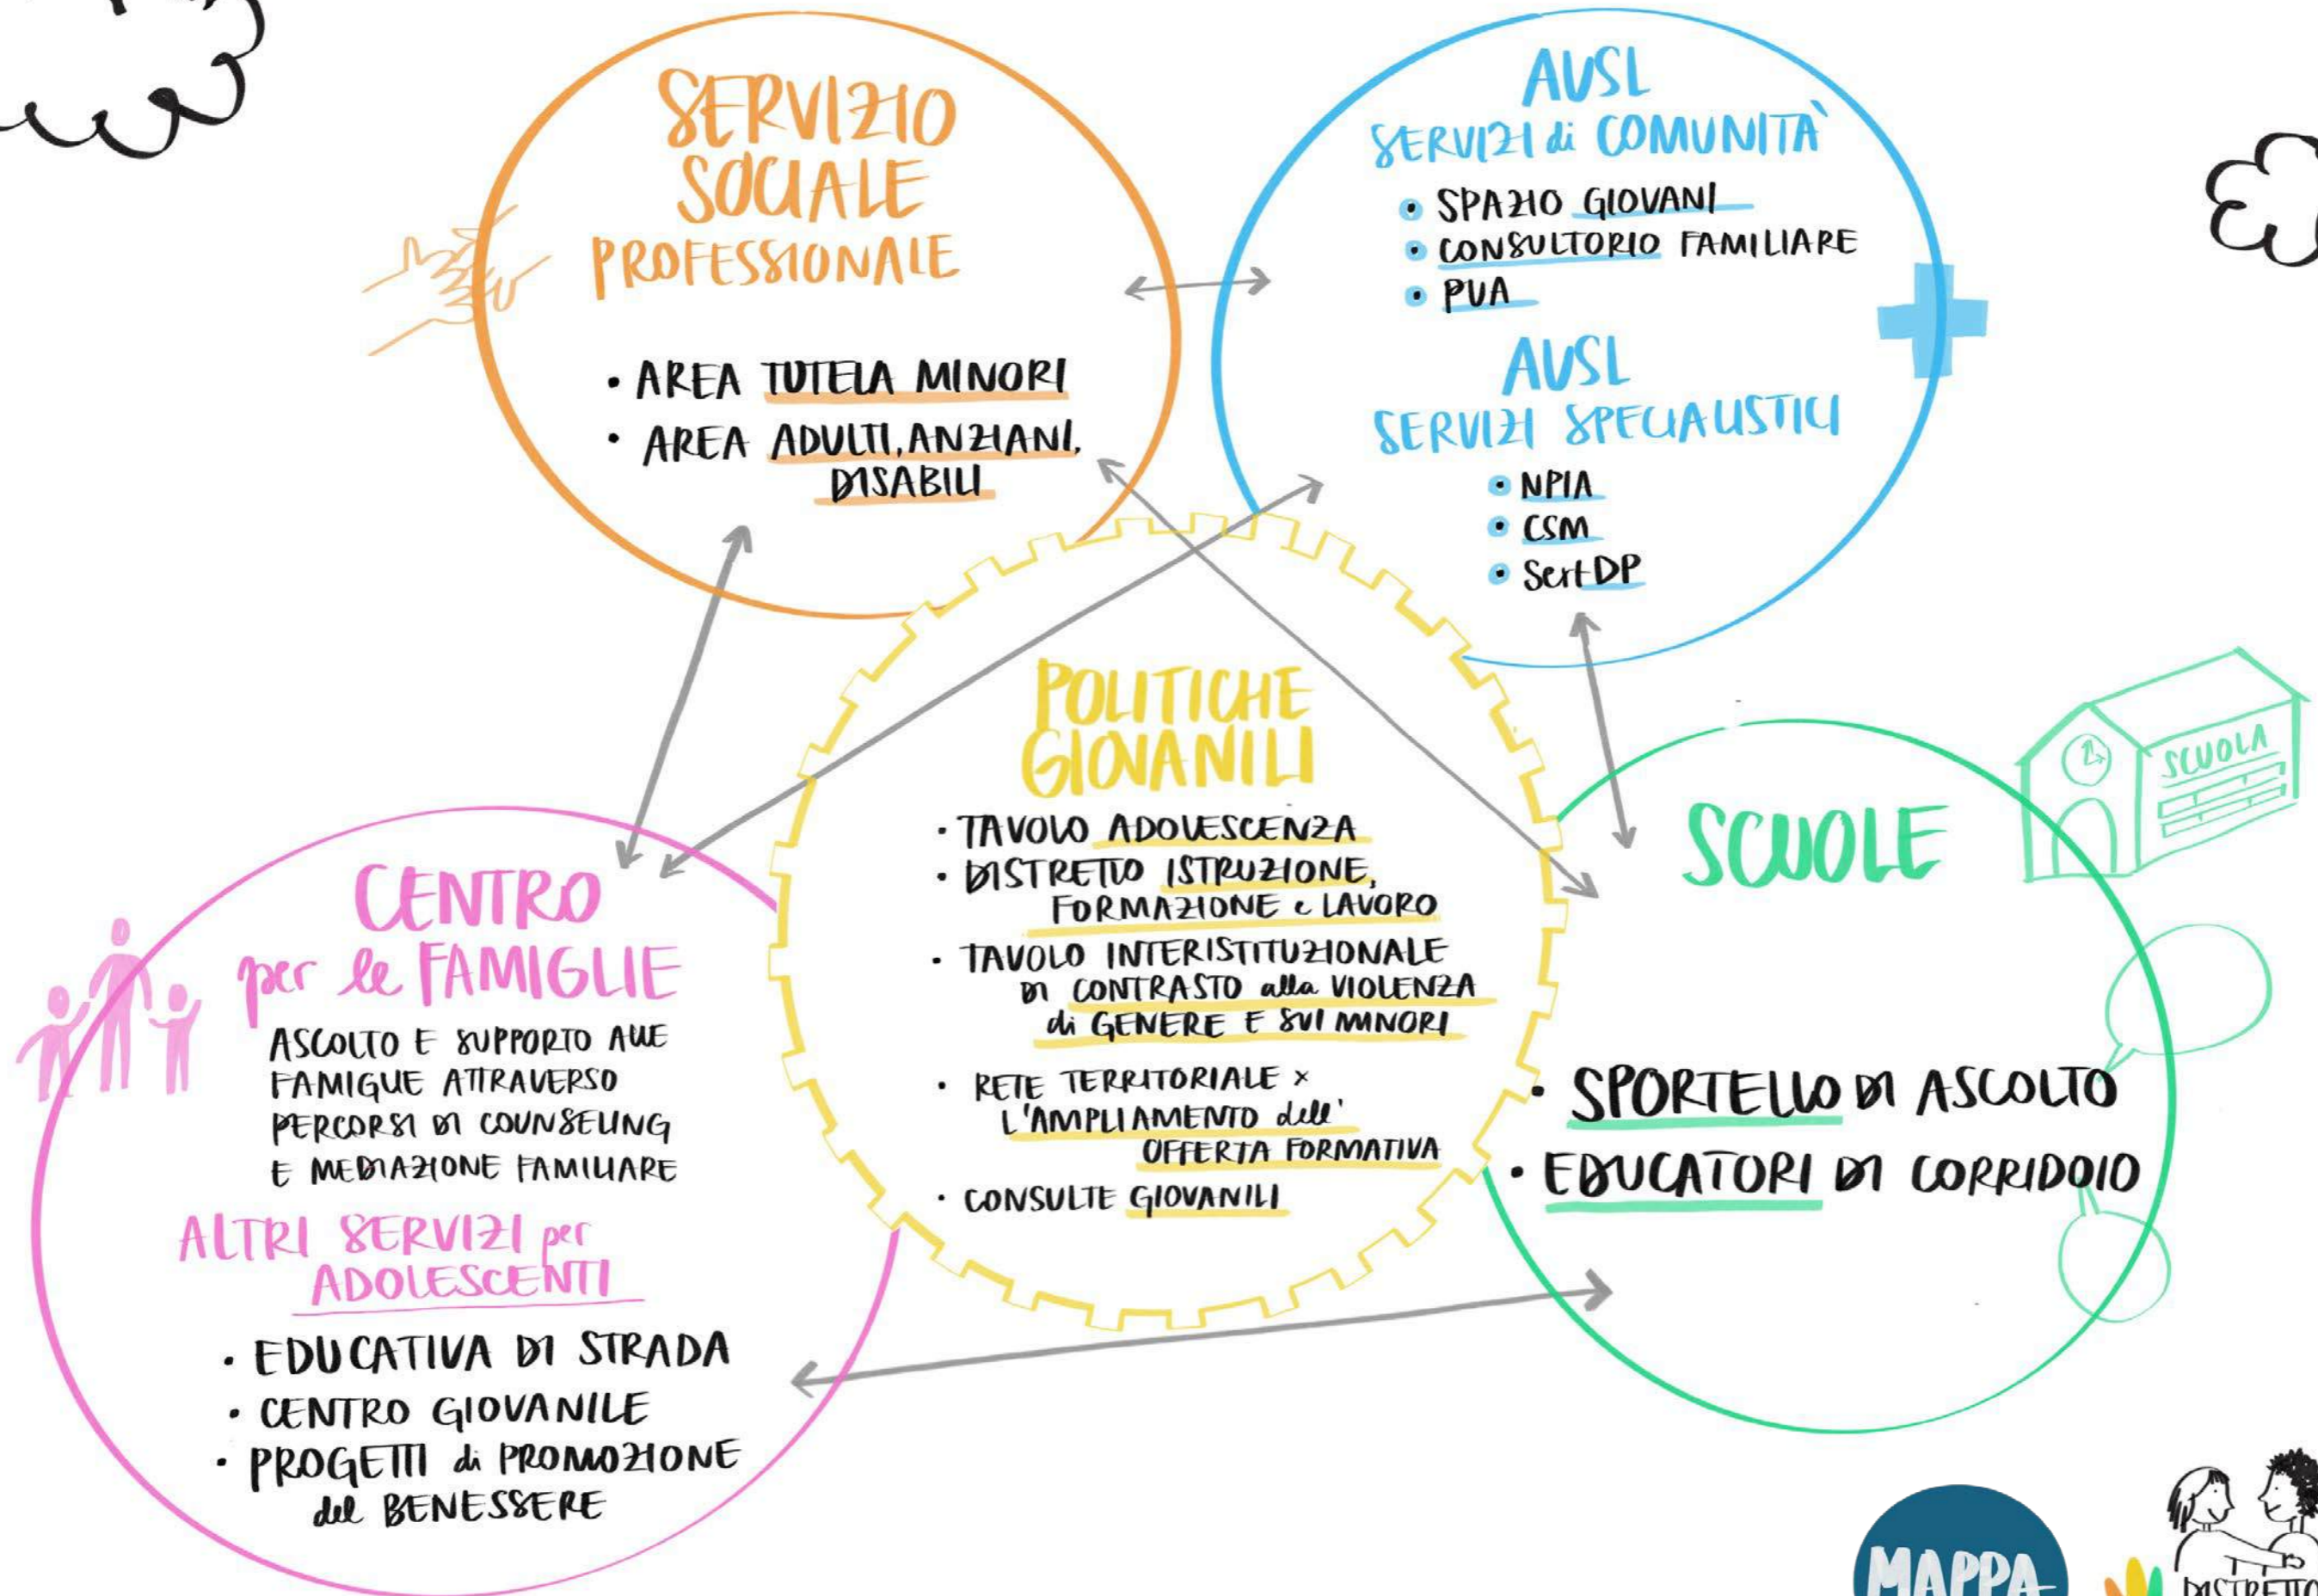 SERVIZIO
SOCIALE
PROFESSIONALE
• AREA TUTELA MINORI
• AREA ADULTI, ANZIANI,
DISABILI
AUSL
SERVIZI di COMUNITÀ
• SPAZIO GIOVANI
• CONSULTORIO FAMILIARE
• PUA
AUSL
SERVIZI SPECIALISTICI
• NPIA
• CSM
• SertDP
POLITICHE
GIOVANILI
• TAVOLO ADOLESCENZA
• DISTRETTO ISTRUZIONE,
FORMAZIONE e LAVORO
• TAVOLO INTERISTITUZIONALE
DI CONTRASTO alla VIOLENZA
di GENERE E SUI MINORI
• RETE TERRITORIALE x
L'AMPLIAMENTO dell'
OFFERTA FORMATIVA
• CONSULTE GIOVANILI
SCUOLA
SCUOLE
• SPORTELLO DI ASCOLTO
• EDUCATORI DI CORRIDOIO
CENTRO
per le FAMIGLIE
ASCOLTO E SUPPORTO ALLE
FAMIGLIE ATTRAVERSO
PERCORSI DI COUNSELING
E MEDIAZIONE FAMILIARE
ALTRI SERVIZI per
ADOLESCENTI
• EDUCATIVA DI STRADA
• CENTRO GIOVANILE
• PROGETTI di PROMOZIONE
del BENESSERE
MAPPA
DISTRETTO